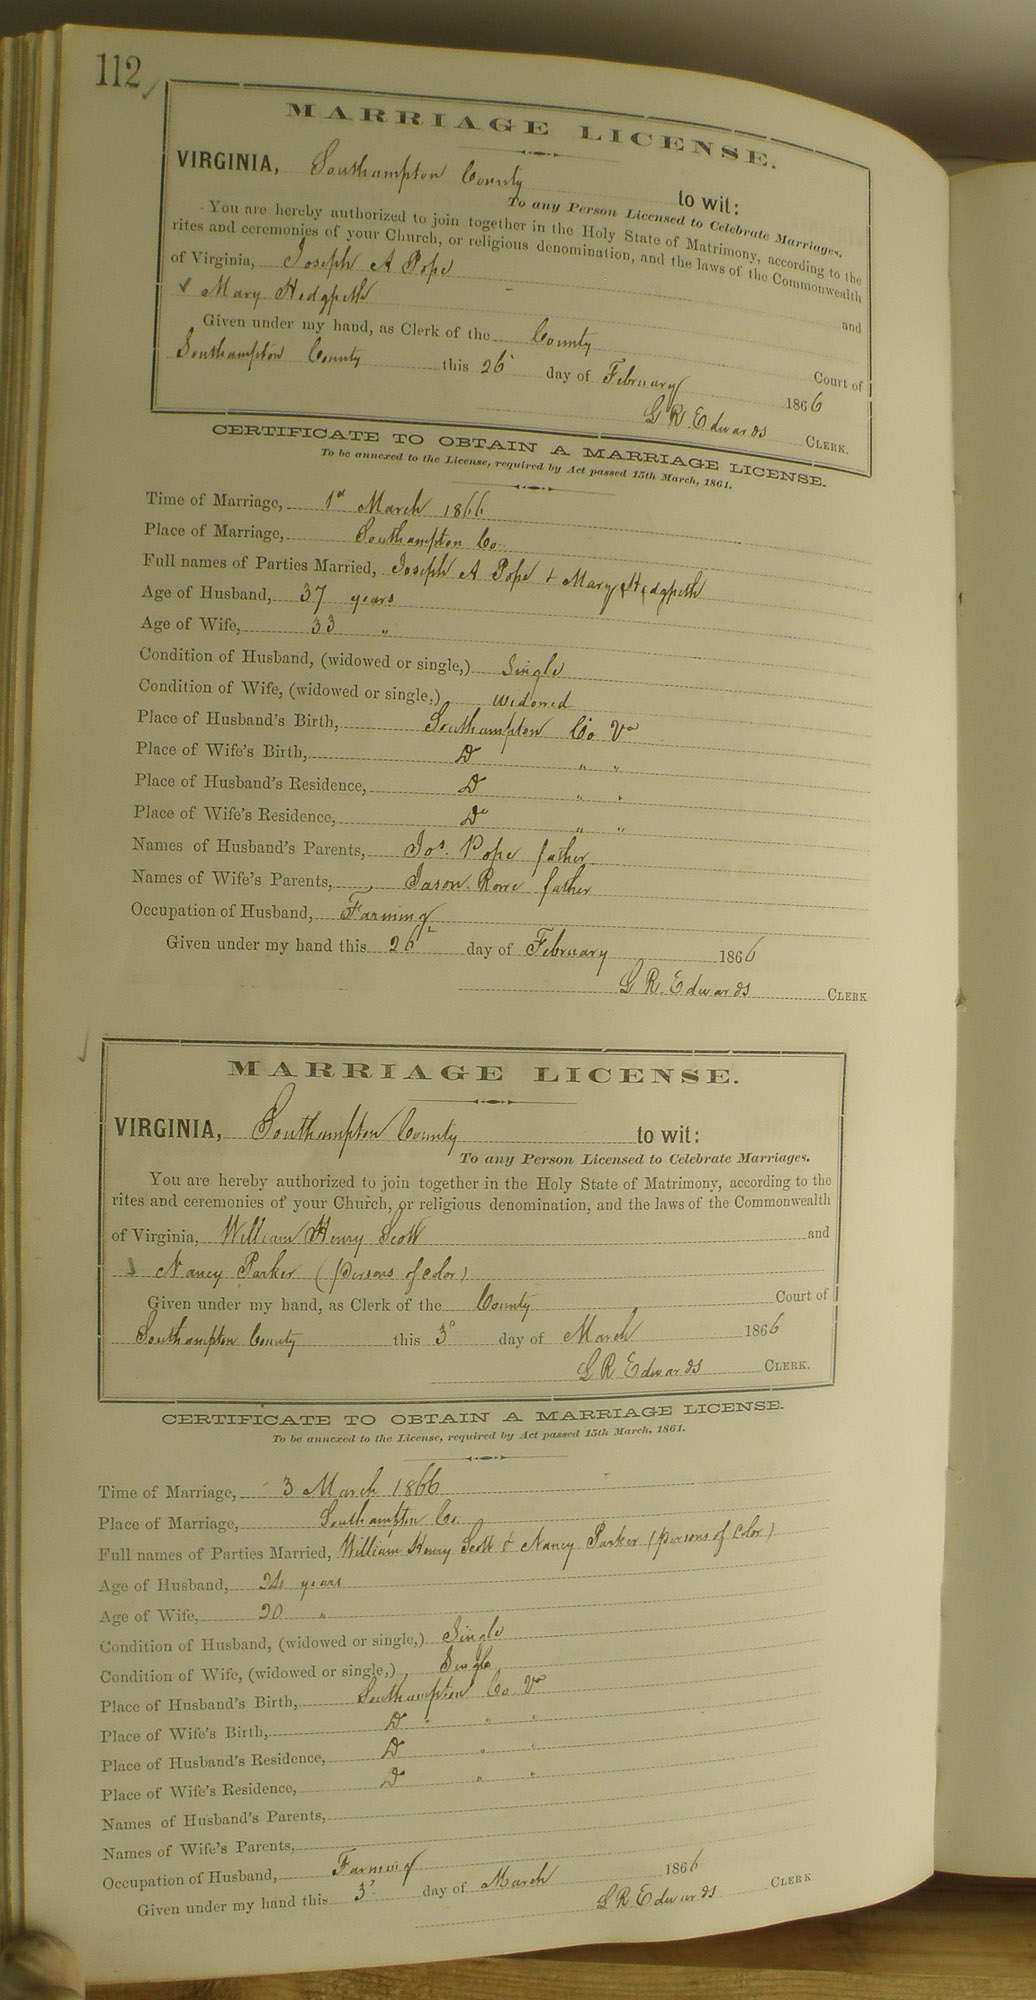 112
MARRIAGE LICENSE.
VIRGINIA, Southampton County to wit:
To any Person Licensed to Celebrate Marriages.
You are hereby authorized to join together in the Holy State of Matrimony, according to the
rites and ceremonies of your Church, or religious denomination, and the laws of the Commonwealth
of Virginia, Joseph A Pope and
Mary Hedgpeth
Given under my hand, as Clerk of the County Court of
Southampton County this 26 day of February 1866
G R Edwards CLERK.
CERTIFICATE TO OBTAIN A MARRIAGE LICENSE.
To be annexed to the License, required by Act passed 15th March, 1861.
Time of Marriage, 1st March 1866
Place of Marriage, Southampton Co.
Full names of Parties Married, Joseph A Pope & Mary Hedgpeth
Age of Husband, 37 years
Age of Wife, 33 "
Condition of Husband, (widowed or single,) Single
Condition of Wife, (widowed or single,) widowed
Place of Husband's Birth, Southampton Co Va
Place of Wife's Birth, Do " "
Place of Husband's Residence, Do " "
Place of Wife's Residence, Do " "
Names of Husband's Parents, Jos. Pope father
Names of Wife's Parents, Jason father
Occupation of Husband, Farming
Given under my hand this 26 day of February 1866
G R. Edwards CLERK
MARRIAGE LICENSE.
VIRGINIA, Southampton County to wit:
To any Person Licensed to Celebrate Marriages.
You are hereby authorized to join together in the Holy State of Matrimony, according to the
rites and ceremonies of your Church, or religious denomination, and the laws of the Commonwealth
of Virginia, William Henry Scott and
Nancy Parker (persons of color)
Given under my hand, as Clerk of the County Court of
Southampton County this 3d day of March 1866
G R Edwards CLERK.
CERTIFICATE TO OBTAIN A MARRIAGE LICENSE.
To be annexed to the License, required by Act passed 15th March, 1861.
Time of Marriage, 3 March 1866
Place of Marriage, Southampton Co.
Full names of Parties Married, William Henry Scott & Nancy Parker (persons of color)
Age of Husband, 24 years
Age of Wife, 20 "
Condition of Husband, (widowed or single,) Single
Condition of Wife, (widowed or single,) Single
Place of Husband's Birth, Southampton Co Va
Place of Wife's Birth, Do " "
Place of Husband's Residence, Do " "
Place of Wife's Residence, Do " "
Names of Husband's Parents,
Names of Wife's Parents,
Occupation of Husband, Farming
Given under my hand this 3d day of March 1866
G R Edwards CLERK